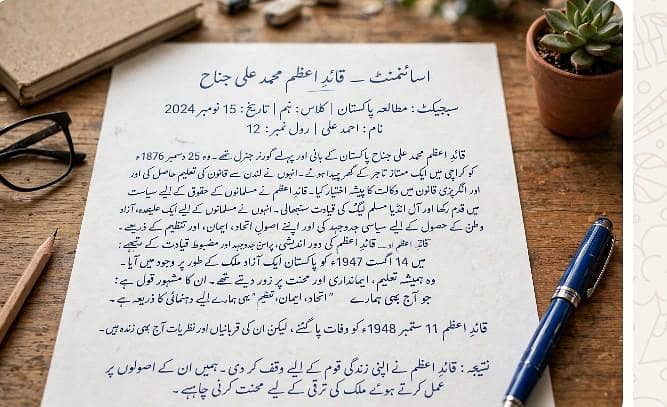 اسائنمنٹ – قائدِ اعظم محمد علی جناح
سبجیکٹ: مطالعہ پاکستان | کلاس: نہم | تاریخ: 15 نومبر 2024
نام: احمد علی | رول نمبر: 12
قائدِ اعظم محمد علی جناح پاکستان کے بانی اور پہلے گورنر جنرل تھے۔ وہ 25 دسمبر 1876ء
کو کراچی میں ایک ممتاز تاجر کے گھر پیدا ہوئے۔ انہوں نے لندن سے قانون کی تعلیم حاصل کی اور
اور انگریزی قانون میں وکالت کا پیشہ اختیار کیا۔ قائدِ اعظم نے مسلمانوں کے حقوق کے لیے سیاست
میں قدم رکھا اور آل انڈیا مسلم لیگ کی قیادت سنبھالی۔ انہوں نے مسلمانوں کے لیے ایک علیحدہ، آزاد
وطن کے حصول کے لیے سیاسی جدوجہد کی اور اپنے اصولِ اتحاد، ایمان، اور تنظیم کے ذریعے۔
قائدِ اعظم کی دور اندیشی، پرامن جدوجہد اور مضبوط قیادت کے نتیجے:
میں 14 اگست 1947ء کو پاکستان ایک آزاد ملک کے طور پر وجود میں آیا۔
وہ ہمیشہ تعلیم، ایمانداری اور محنت پر زور دیتے تھے۔ ان کا مشہور قول ہے:
جو آج بھی ہمارے "اتحاد، ایمان، تنظیم" یہی ہمارے لیے رہنمائی کا ذریعہ ہے۔
قائدِ اعظم 11 ستمبر 1948ء کو وفات پا گئے، لیکن ان کی قربانیاں اور نظریات آج بھی زندہ ہیں۔
نتیجہ: قائدِ اعظم نے اپنی زندگی قوم کے لیے وقف کر دی۔ ہمیں ان کے اصولوں پر
عمل کرتے ہوئے ملک کی ترقی کے لیے محنت کرنی چاہیے۔